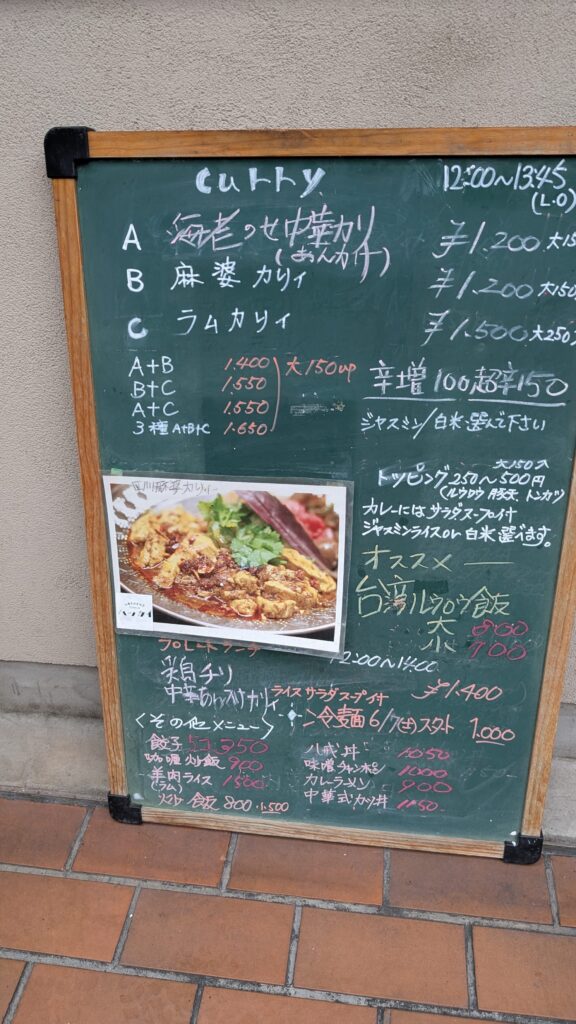 curry 12:00～13:45
(L.O)
A 海老のせ中華カリー ¥1.200 大15
(あんカケ)
B 麻婆カリィ ¥1.200 大150
C ラムカリィ ¥1.500 大250
A+B 1.400 大150up
B+C 1.550
A+C 1.550
3種 A+B+C 1.650
辛増100超辛150
ジャスミン/白米選んで下さい
大150
トッピング250～500円
(ルウロウ 豚天 トンカツ)
カレーにはサラダスープ付
ジャスミンライスor白米選べます。
オススメ
台湾ルウロウ飯
大 800
700
麻婆カリィー
プレートランチ 12:00～14:00
鶏チリ
中華あんかけカリィ ライスサラダスープ付 ¥1.400
〈その他メニュー〉
冷麺 6/7(土)スタート 1.000
餃子 5コ 350
咖喱炒飯 900
羊肉ライス 1500
(ラム)
炒飯 800 1.500
八戒丼 1050
味噌チャンポン 1000
カレーラーメン 900
中華式カツ丼 1150